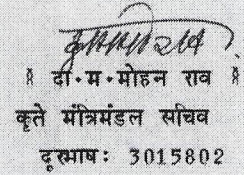 ( दा॰म॰मोहन राव )
कृते मंत्रिमंडल सचिव
दूरभाष: 3015802